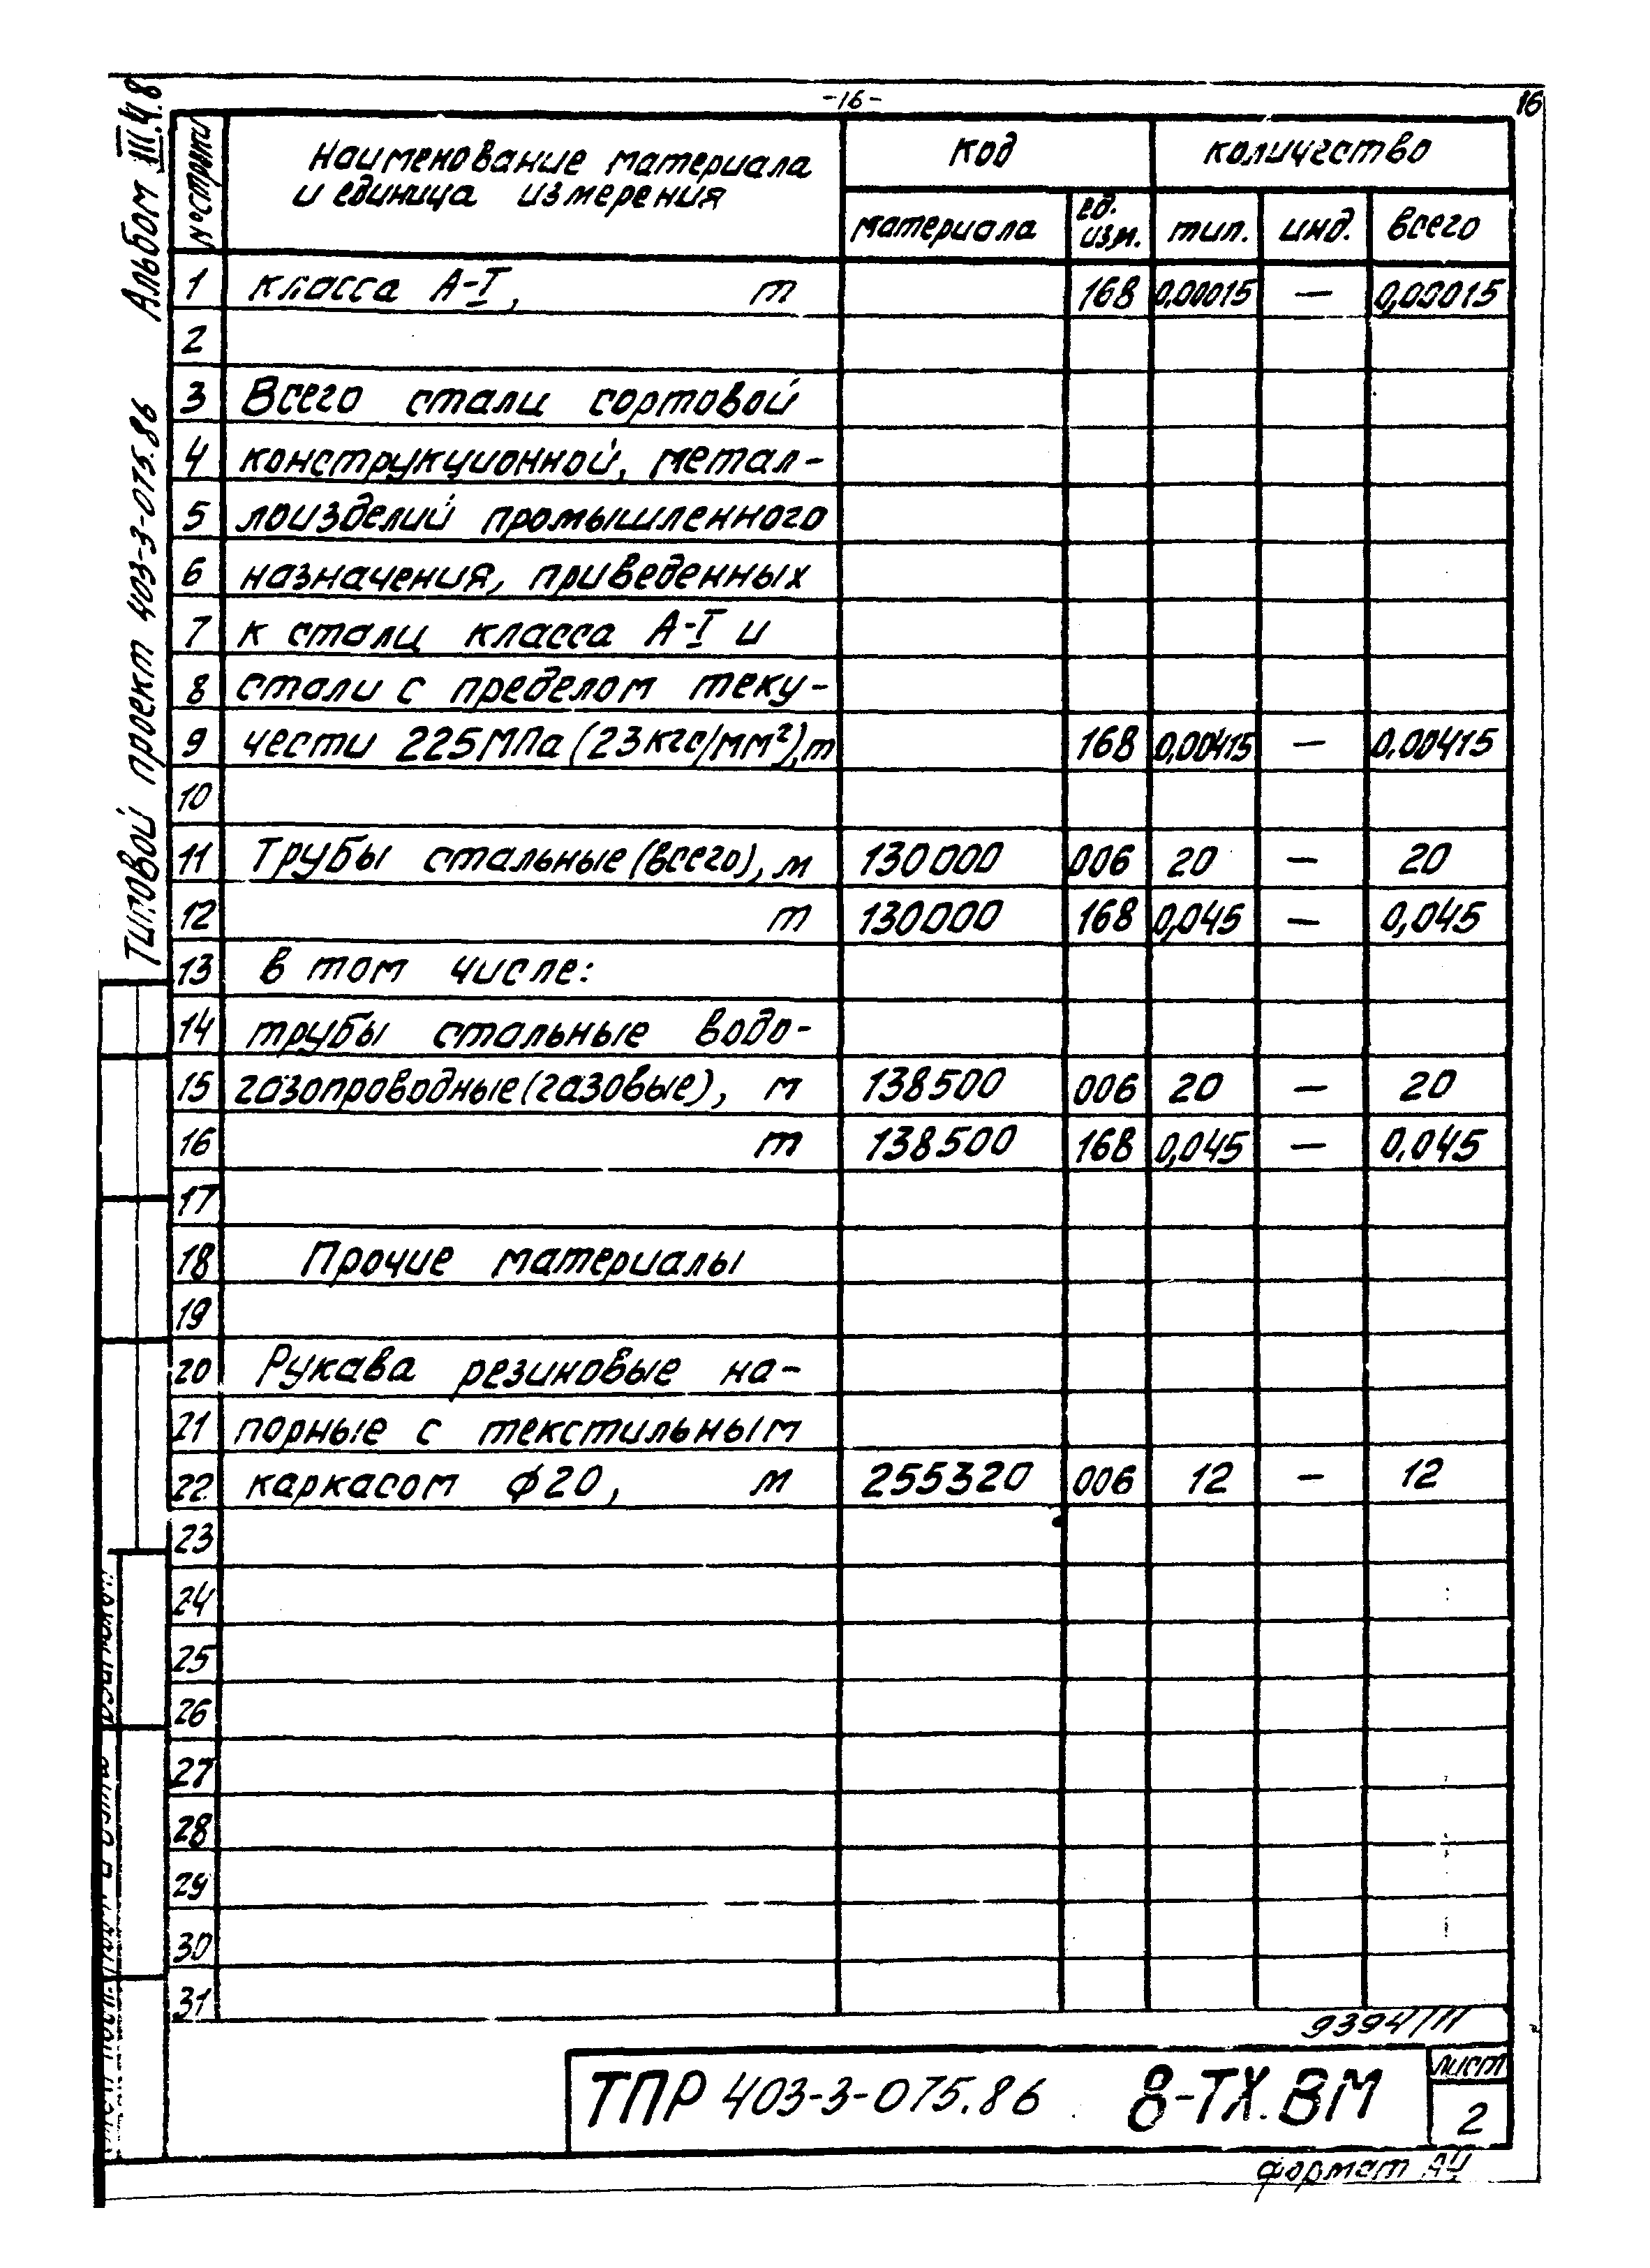 -16-
16
Альбом III.4.8
Типовой проект 403-3-075.86
№ строки
Наименование материала
и единица измерения
Код
количество
материала
ед.
изм.
тип.
инд.
всего
1 класса А-I, т 168 0,00015 — 0,00015
2
3 Всего стали сортовой
4 конструкционной, метал-
5 лоизделий промышленного
6 назначения, приведенных
7 к стали класса А-I и
8 стали с пределом теку-
9 чести 225МПа (23кгс/мм²), т 168 0,00415 — 0,00415
10
11 Трубы стальные (всего), м 130000 006 20 — 20
12 т 130000 168 0,045 — 0,045
13 в том числе:
14 трубы стальные водо-
15 газопроводные (газовые), м 138500 006 20 — 20
16 т 138500 168 0,045 — 0,045
17
18 Прочие материалы
19
20 Рукава резиновые на-
21 порные с текстильным
22 каркасом ф20, м 255320 006 12 — 12
23
24
25
26
27
28
29
30
31
9394/11
ТПР 403-3-075.86 8-ТХ.ВМ
лист
2
формат А4